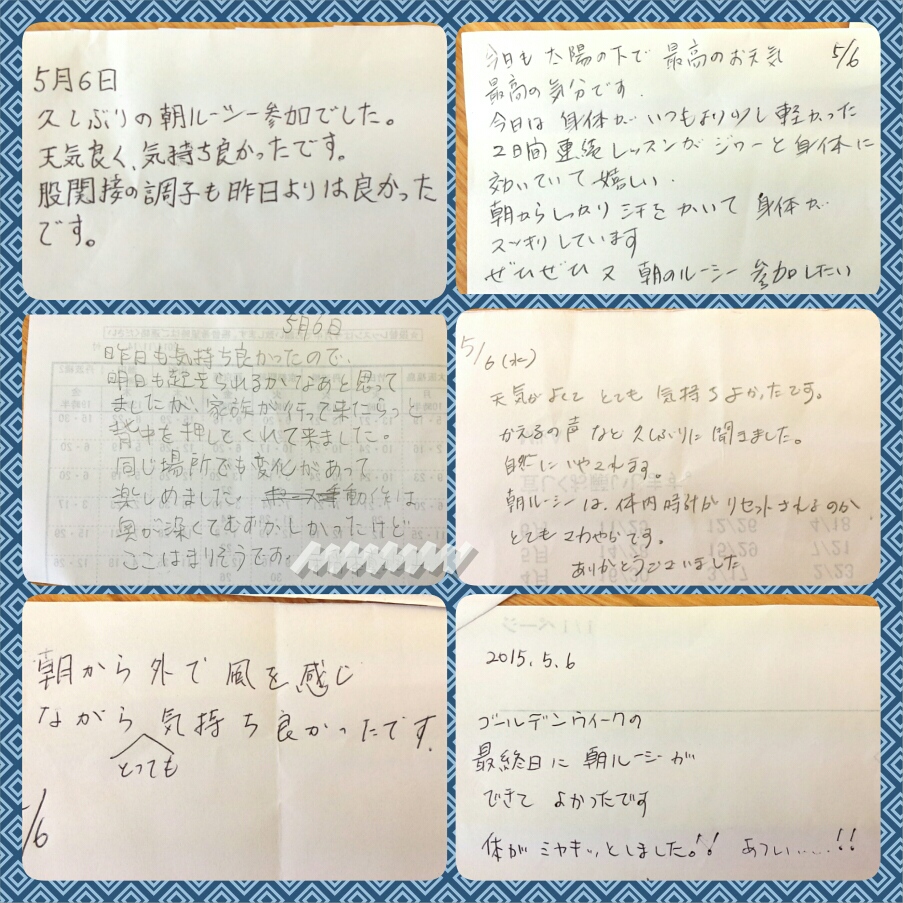 5月6日
久しぶりの朝ルーシー参加でした。
天気良く、気持ち良かったです。
股関接の調子も昨日よりは良かった
です。
今日も 太陽の下で 最高のお天気 5/6
最高の気分です.
今日は 身体が いつもより少し軽かった
2日間 連続レッスンが ジワーと身体に
効いていて 嬉しい.
朝からしっかり 汗を かいて 身体が
スッキリしています
ぜひぜひ 又 朝のルーシー 参加したい
5月6日
昨日も気持ち良かったので、
明日も起きられるかなあと思って
ましたが、家族が行って来たらっと
背中を押してくれて来ました。
同じ場所でも変化があって
楽しめました。 動作は
奥が深くてむずかしかったけど
ここはまりそうです.
5/6 (水)
天気がよくて とても 気持ちよかったです。
かえるの声 など 久しぶりに 聞きました。
自然に いやされます。
朝ルーシーは、体内時計が リセットされるのか
とても さわやかです。
ありがとうございました
朝から 外で 風を感じ
ながら 気持ち良かったです.
とっても
5/6
2015.5.6
ゴールデンウィークの
最終日に 朝ルーシーが
できて よかったです
体が シャキッとしました。!! あつい……!!